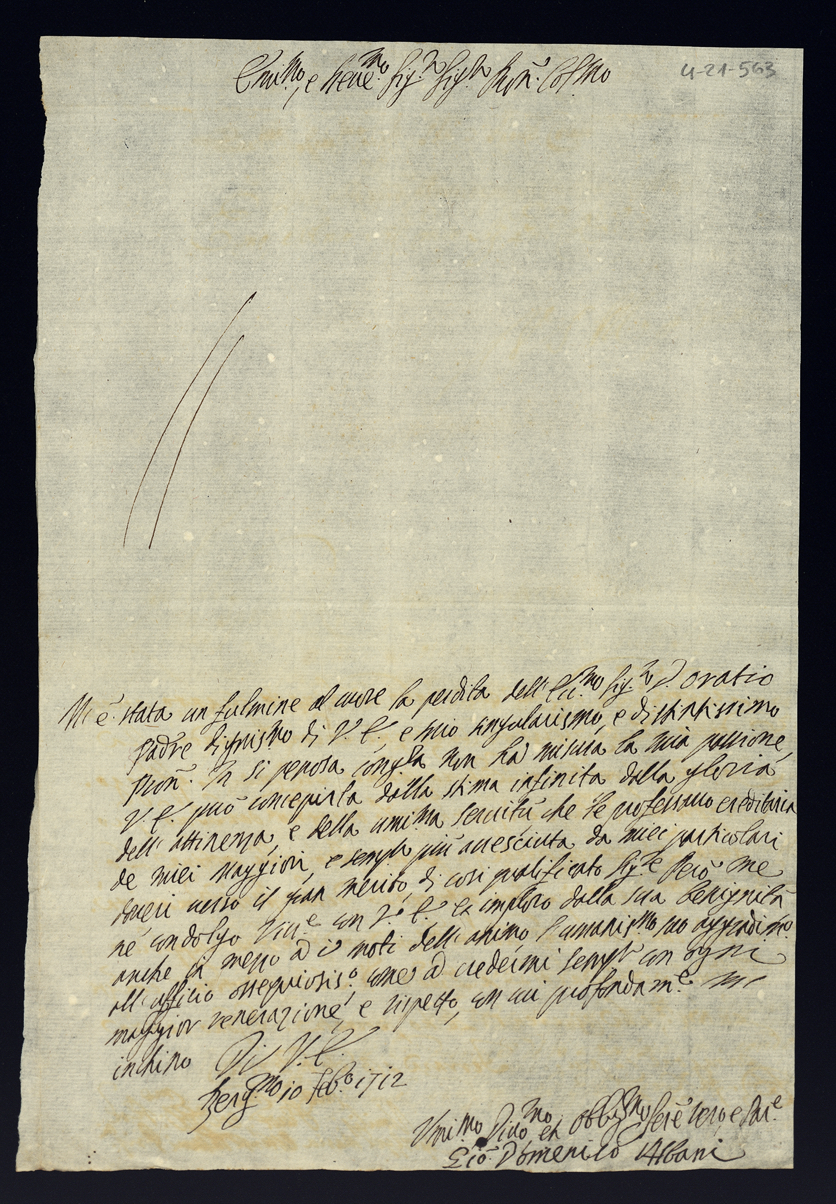 Emi.mo, e Reve.mo Sig.r Sig.re Pron. Col.mo
4-21-563
M'è stata un fulmine al cuore la perdita dell'Ecc.mo Sig.r D. Oratio
Padre dignissimo di V. E., e mio singularissimo, e distintissimo
Pron. In si penosa congiª non ha misura la mia passione,
V. E. può concepirla dalla stima infinita della gloria
dell'attinenza, e della umi.ma servitù che le professano ereditaria
de miei Maggiori, e sempre più accresciuta da miei particolari
doveri verso il gran merito, di così qualificato Sig.re Però me
ne condolgo con V. E. et imploro dalla sua benignità
anche in mezzo a i moti dell'animo l'umaniss.mo suo aggradim.to
all'ufficio ossequiosis.o come a credermi sempre con ogni
maggior venerazione, e rispetto, con cui profondam.e mi
inchino Di V. E.
Berg.mo 10 Feb.o 1712
Umi.mo Divo.mo et Obblig.mo Ser.e vero, e Par.e
Gio. Domenico Albani